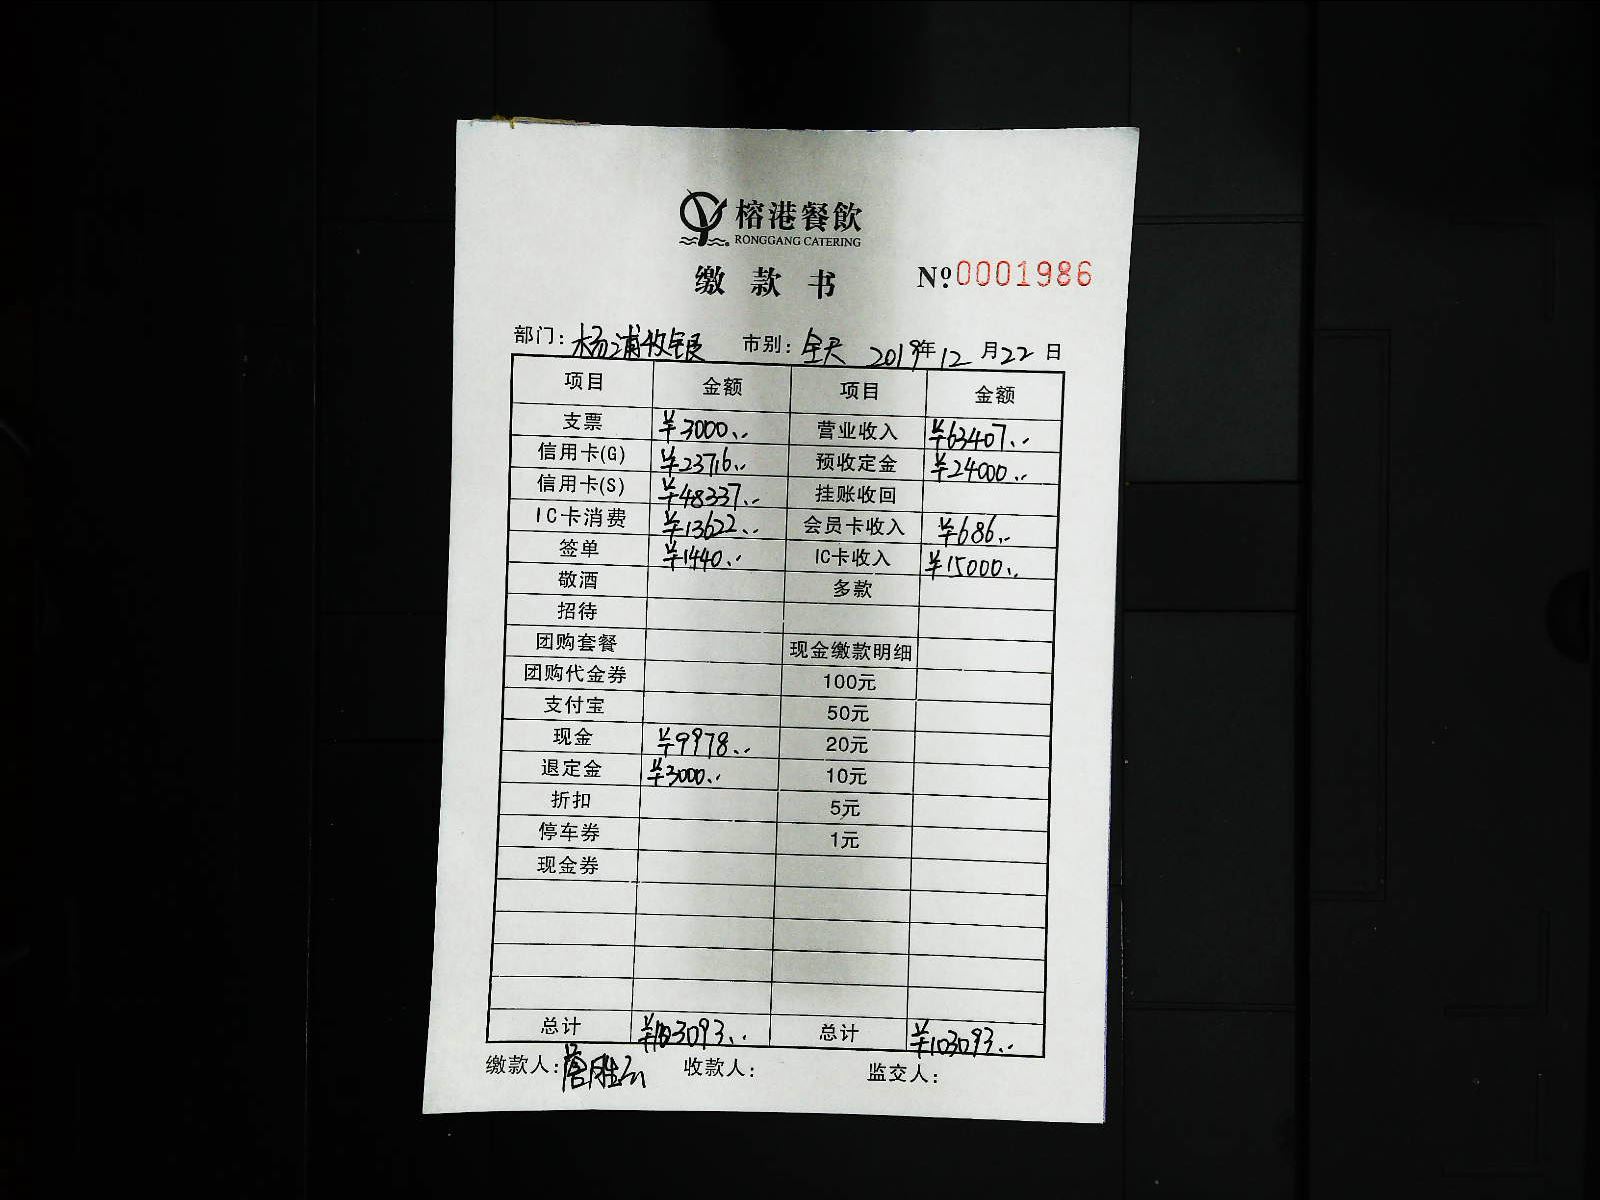 榕港餐飲
RONGGANG CATERING
缴款书 Nº 0001986
部门：杨浦收银 市别：全天 2019年12月22日
项目 金额 项目 金额
支票 ¥3000.. 营业收入 ¥63407..
信用卡(G) ¥23716.. 预收定金 ¥24000..
信用卡(S) ¥48337.. 挂账收回
IC卡消费 ¥13622.. 会员卡收入 ¥686..
签单 ¥1440.. IC卡收入 ¥15000..
敬酒 多款
招待
团购套餐 现金缴款明细
团购代金券 100元
支付宝 50元
现金 ¥9978.. 20元
退定金 ¥3000.. 10元
折扣 5元
停车券 1元
现金券
总计 ¥103093.. 总计 ¥103093..
缴款人： 收款人： 监交人：